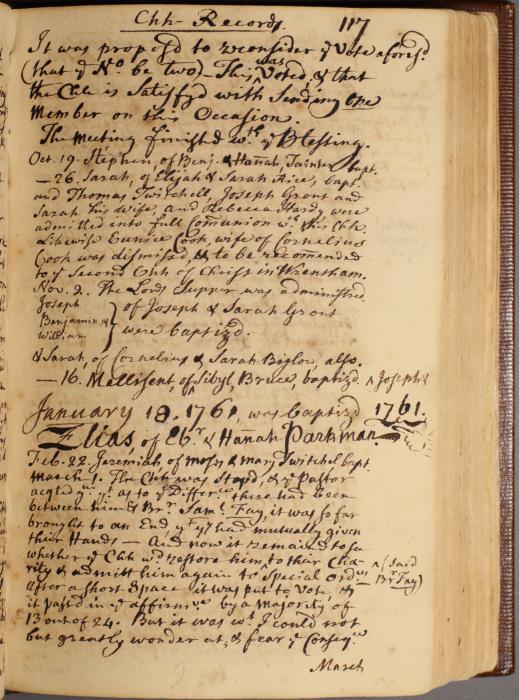 Chh- Records. 117
It was propos'd to reconsider ye Vote aforesd.
(that ye No. be two) - This was Voted; & that
the Chh is Satisfyd with Sending One
Member on this Occasion.
The Meeting finished wth ye Blessing.
Oct. 19. Stephen, of Benj. & Hannah, Tainter bapt.
- 26. Sarah, of Elijah & Sarah Rice, bapt.
and Thomas Twitchell, Joseph Grout and
Sarah his Wife, and Rebecca Hardy were
admitted into full Com̄union wth this Chh.
Likewise Eunice Cook, wife of Cornelius
Cook was dismissd, & to be recom̄ended
to ye Second Chh of Christ in Wrensham.
Nov. 2. The Lords Supper was administred.
Joseph
Benjamin &
William } of Joseph & Sarah Grout
were baptizd.
& Sarah, of Cornelius & Sarah Biglow, also.
- 16. Mellisent, of Sibyl Bruce, baptizd. ^ Joseph &
January 18. 1761, was baptizd 1761.
Elias, of Ebr. & Hannah Parkman.
Feb. 22. Jeremiah of Moses & Mary Twitchel bapt.
March 1. The Chh was Stayd, & ye Pastor
acqtd ym yt as to ye Differce there had been
between him & Br. Saml. Fay, it was so far
brought to an End yt yy had mutually given
their Hands - And now it remained to see
whether ye Chh wd. restore him to their Cha-
rity & admitt him again to Special Ordces ^ (Said
Br Fay)
after a short Space it was put to Vote, &
it passd in ye affirmve by a Majority of
13 out of 24. But it was wt. I could not
but greatly wonder at, & fear ye Conseqce
March